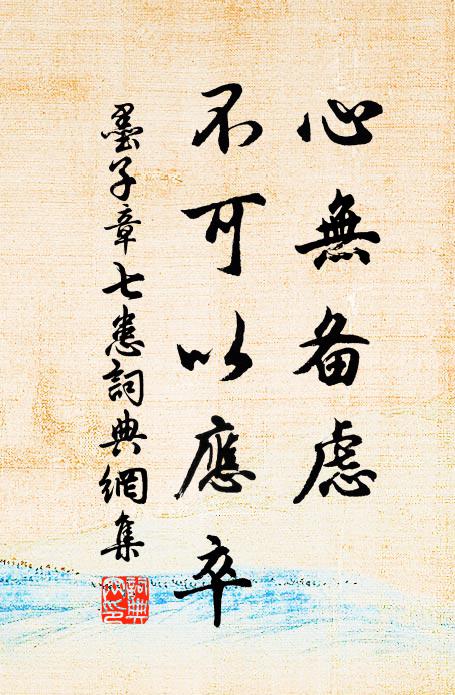 心無备慮
不可以應卒
墨子章七患詞典網集